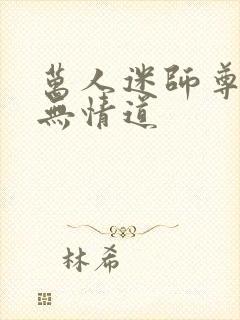 萬人迷師尊
無情道
林希